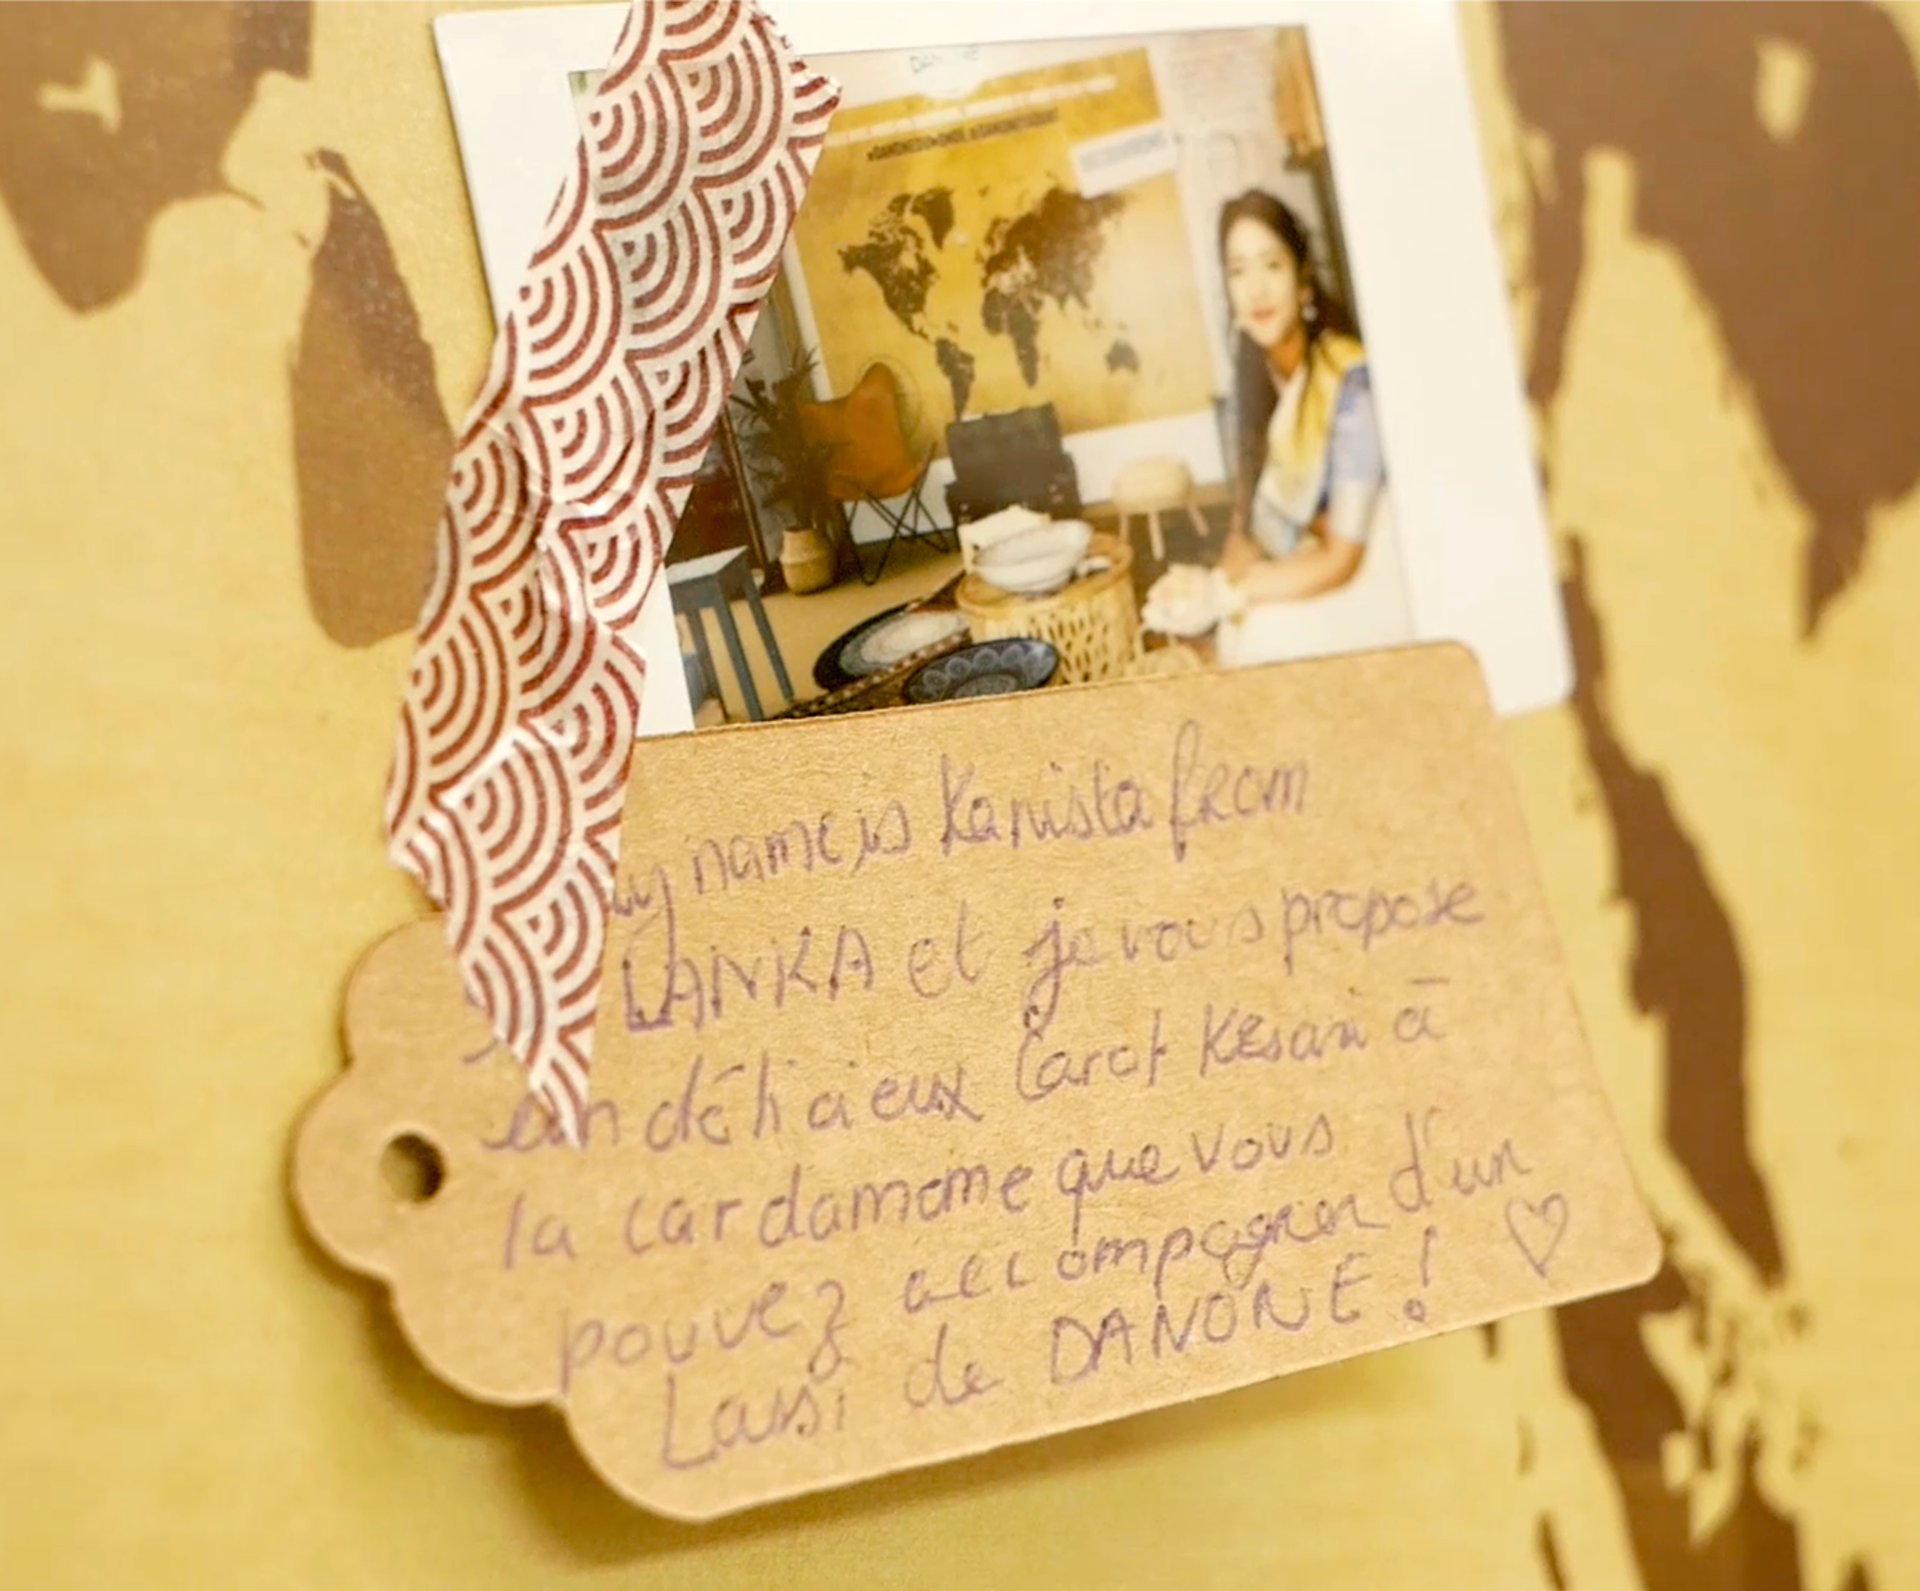 DANONE
y name is Kanista from
LANKA et je vous propose
un délicieux Carot Kesari à
la cardamome que vous
pouvez accompagner d'un
Lassi de DANONE ! ♡